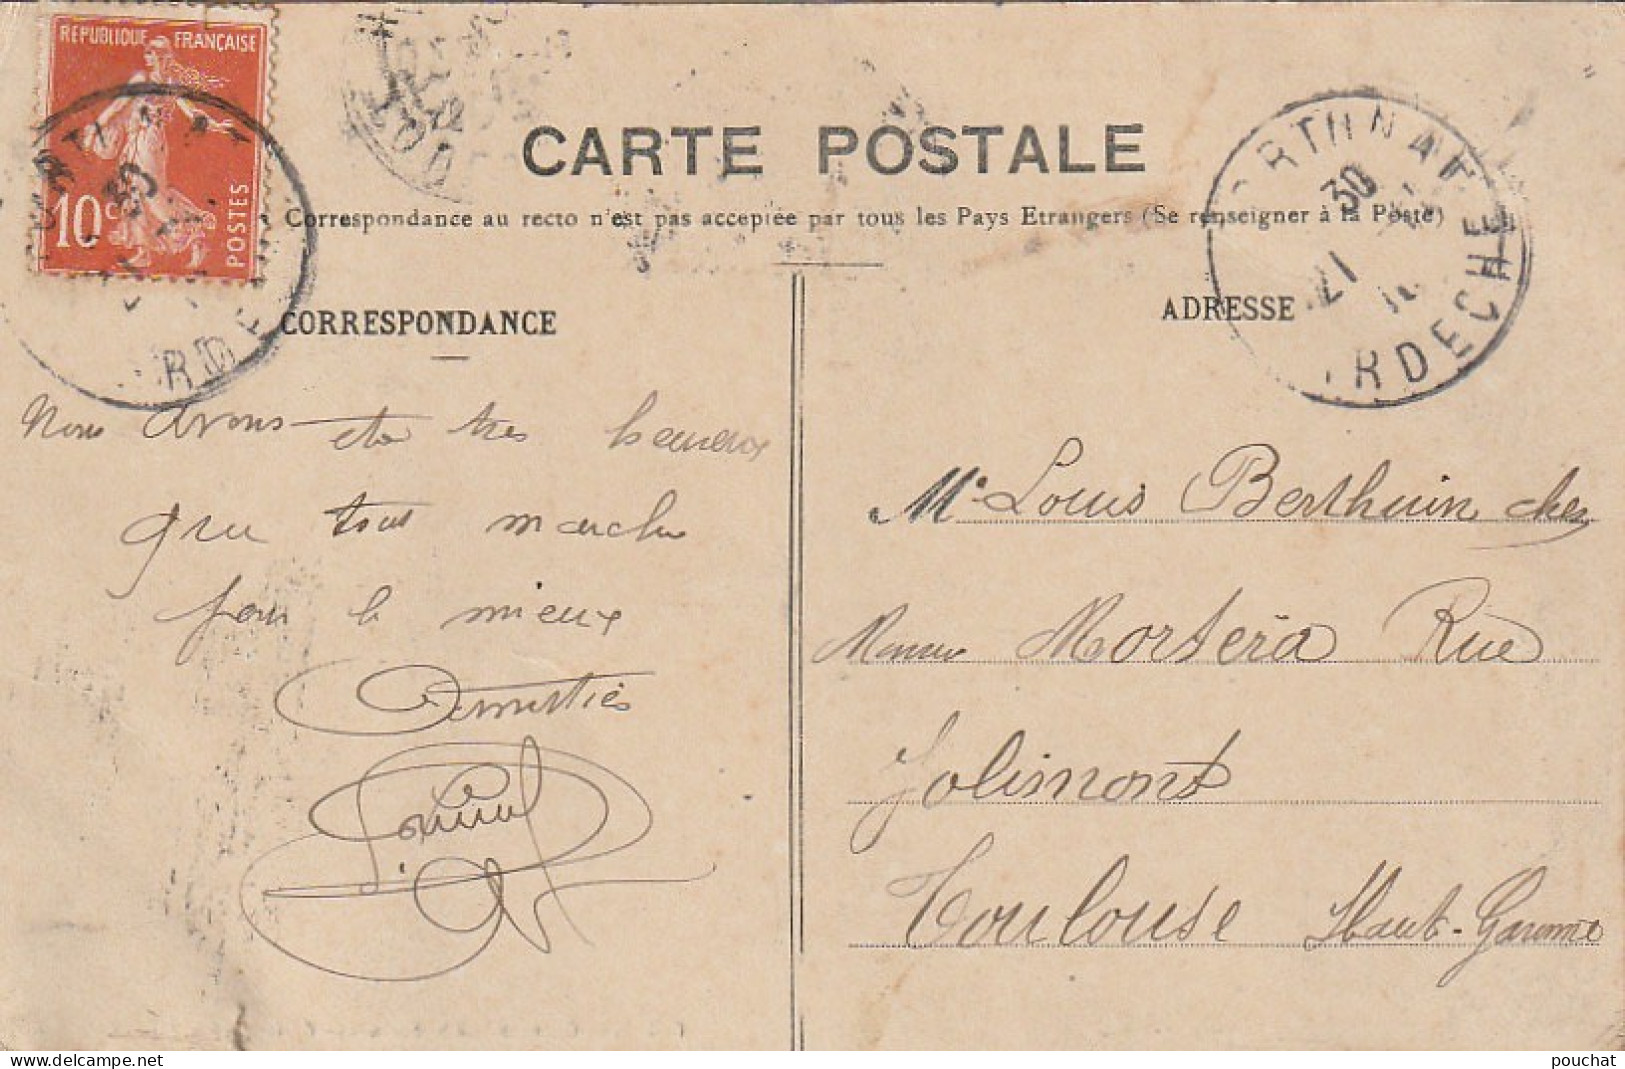 REPUBLIQUE FRANÇAISE
10c
POSTES
CARTE POSTALE
Correspondance au recto n'est pas acceptée par tous les Pays Etrangers (Se renseigner à la Poste)
CORRESPONDANCE
Nous avons été très heureux
que tout marche
pour le mieux
Amitiés
ADRESSE
30
21
ARDECHE
Mr Louis Berthuin chez
Mortera Rue
Jolimont
Toulouse Haute-Garonne
www.delcampe.net
pouchat